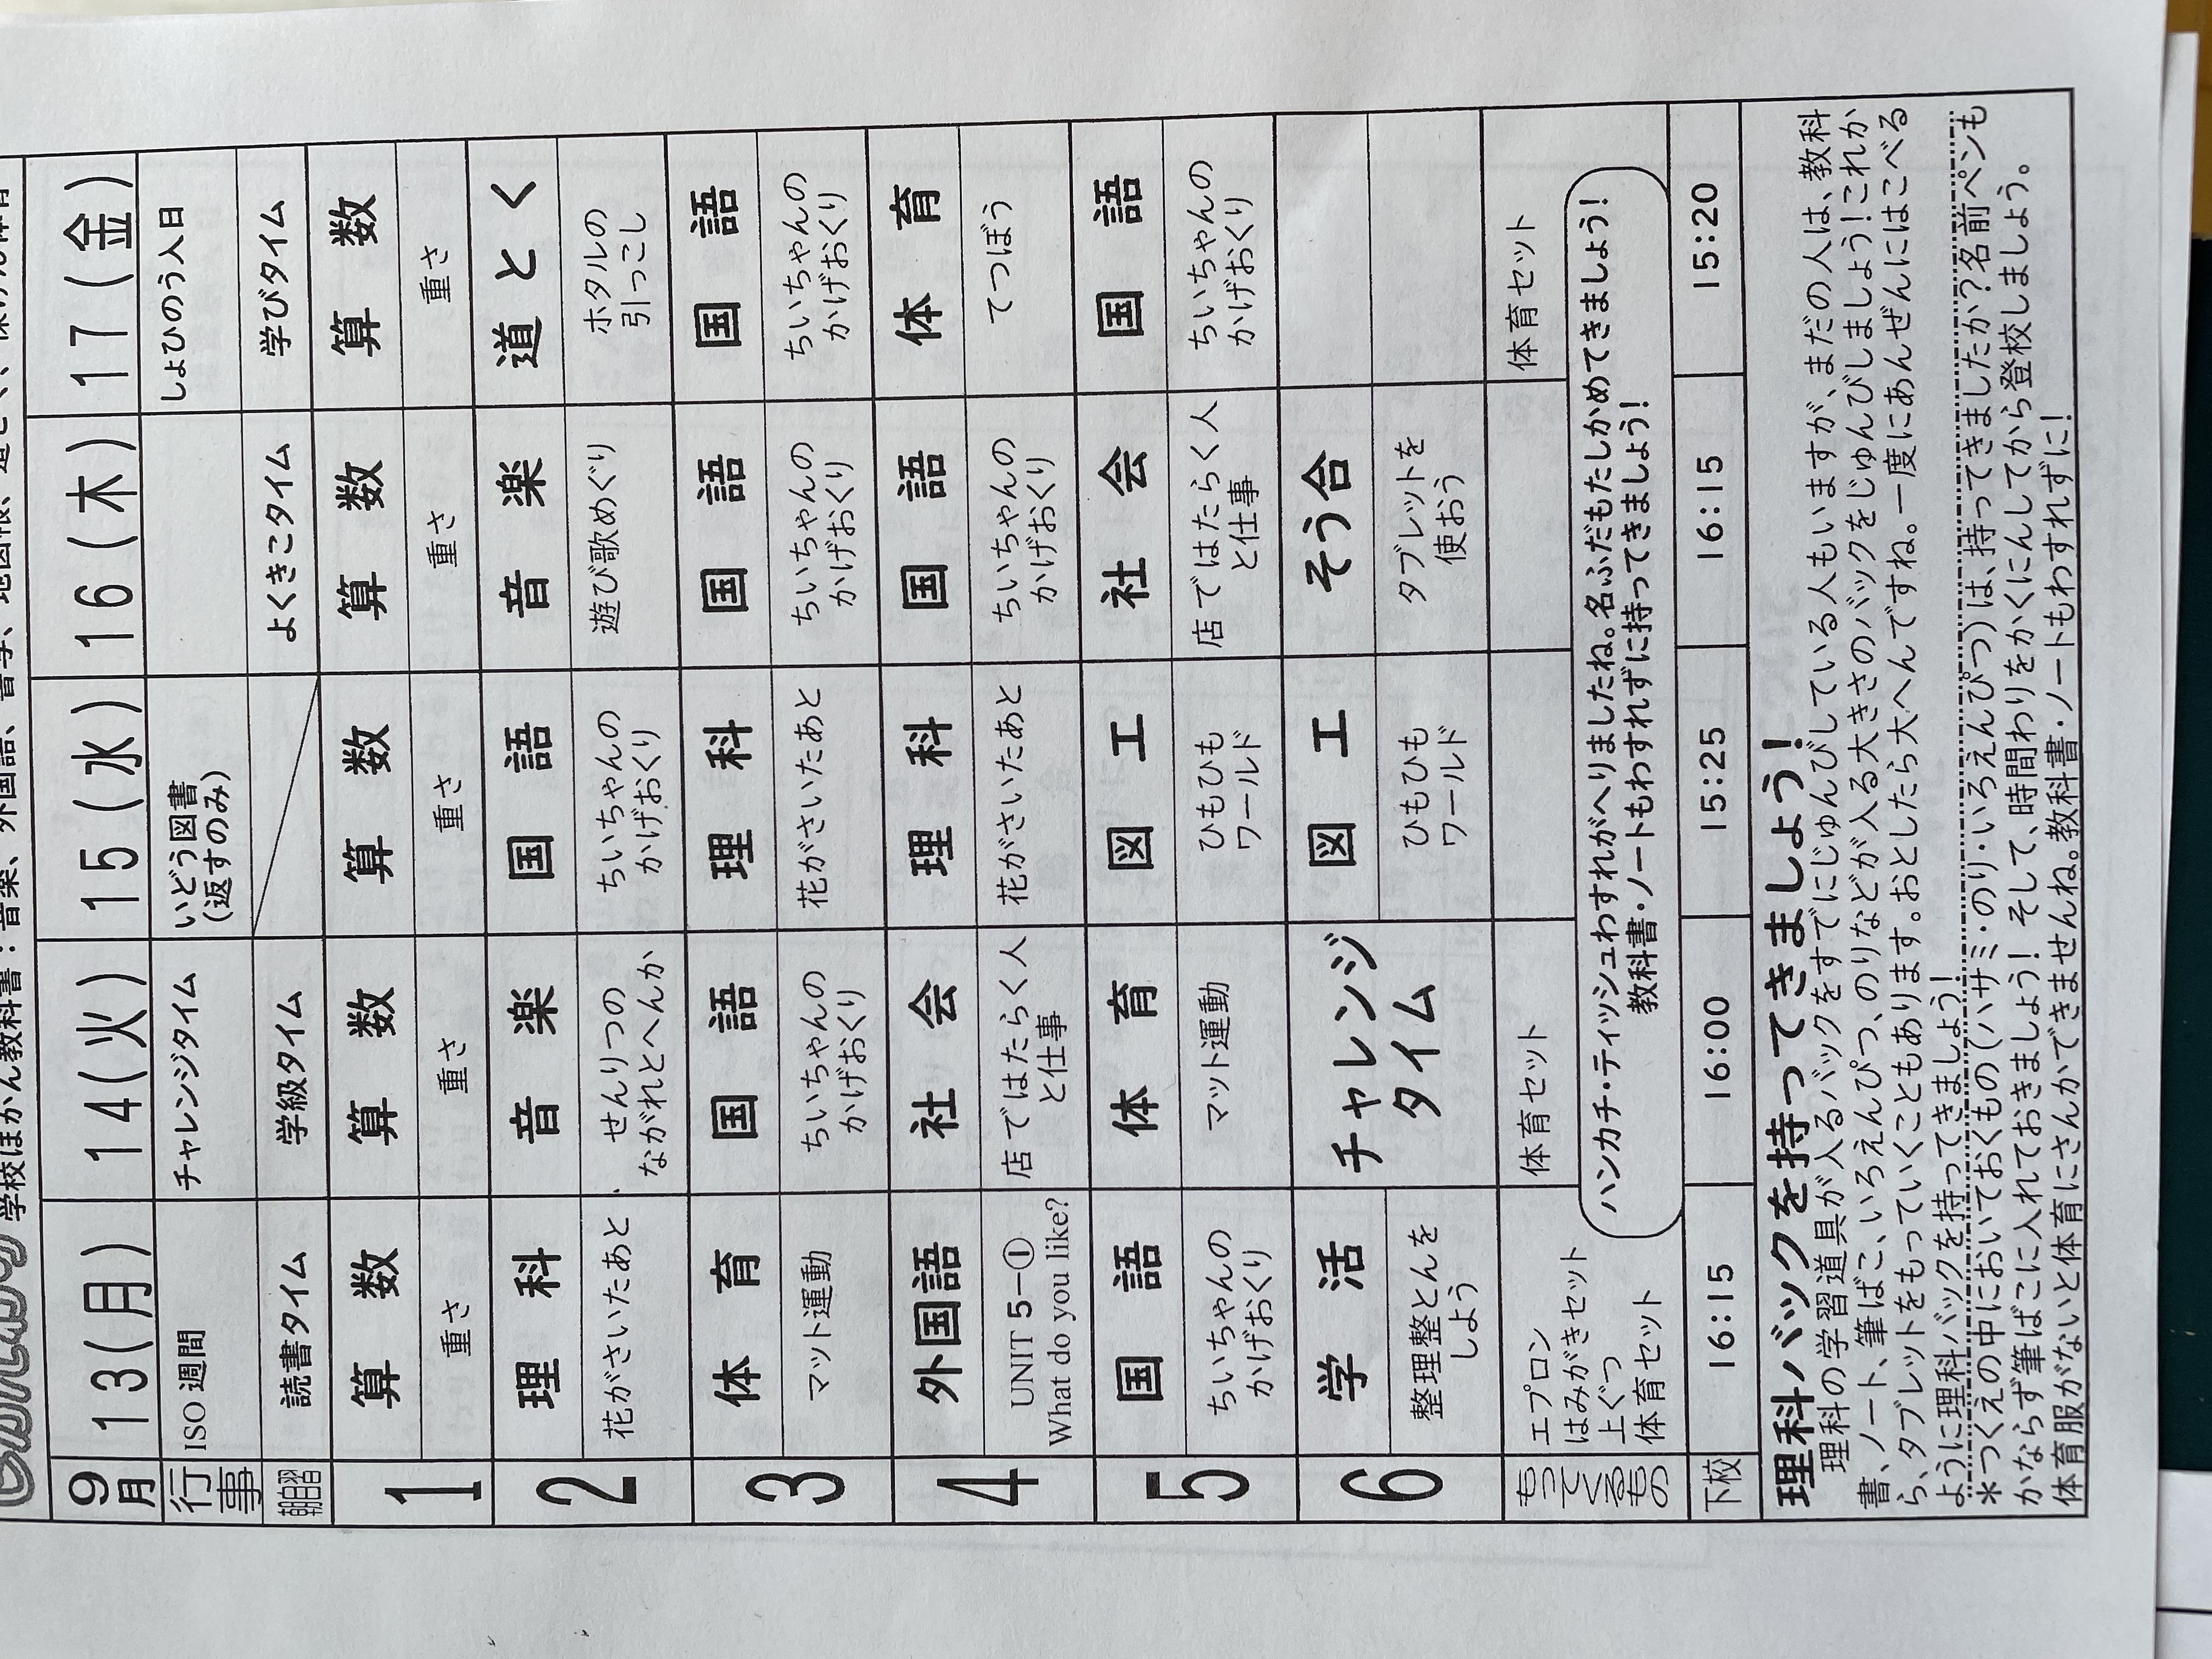 学校ほかん教科書：音楽、外国語、書写、地図帳、道とく、ほけん体育
9月 13(月) 14(火) 15(水) 16(木) 17(金)
行事 ISO週間 チャレンジタイム いどう図書 しょひのう入日
(返すのみ)
朝自習 読書タイム 学級タイム よくきこタイム 学びタイム
1 算数 算数 算数 算数 算数
重さ 重さ 重さ 重さ 重さ
2 理科 音楽 国語 音楽 道とく
花がさいたあと せんりつの ちいちゃんの 遊び歌めぐり ホタルの
ながれとへんか かげおくり 引っこし
3 体育 国語 理科 国語 国語
マット運動 ちいちゃんの 花がさいたあと ちいちゃんの ちいちゃんの
かげおくり かげおくり かげおくり
4 外国語 社会 理科 国語 体育
UNIT 5−① 店ではたらく人 花がさいたあと ちいちゃんの てつぼう
What do you like? と仕事 かげおくり
5 国語 体育 図工 社会 国語
ちいちゃんの マット運動 ひもひも 店ではたらく人 ちいちゃんの
かげおくり ワールド と仕事 かげおくり
6 学活 チャレンジ 図工 そう合
タイム
整理整とんを ひもひも タブレットを
しよう ワールド 使おう
もってくるもの エプロン 体育セット 体育セット
はみがきセット
上ぐつ
体育セット
ハンカチ・ティッシュわすれがへりましたね。名ふだもたしかめてきましょう！
教科書・ノートもわすれずに持ってきましょう！
下校 16:15 16:00 15:25 16:15 15:20
理科バックを持ってきましょう！
理科の学習道具が入るバックをすでにじゅんびしている人もいますが、まだの人は、教科
書、ノート、筆ばこ、いろえんぴつ、のりなどが入る大きさのバックをじゅんびしましょう！これか
ら、タブレットをもっていくこともあります。おとしたら大へんですね。一度にあんぜんにはこべる
ように理科バックを持ってきましょう！
＊つくえの中においておくもの（ハサミ・のり・いろえんぴつ）は、持ってきましたか？名前ペンも
かならず筆ばこに入れておきましょう！そして、時間わりをかくにんしてから登校しましょう。
体育服がないと体育にさんかできませんね。教科書・ノートもわすれずに！